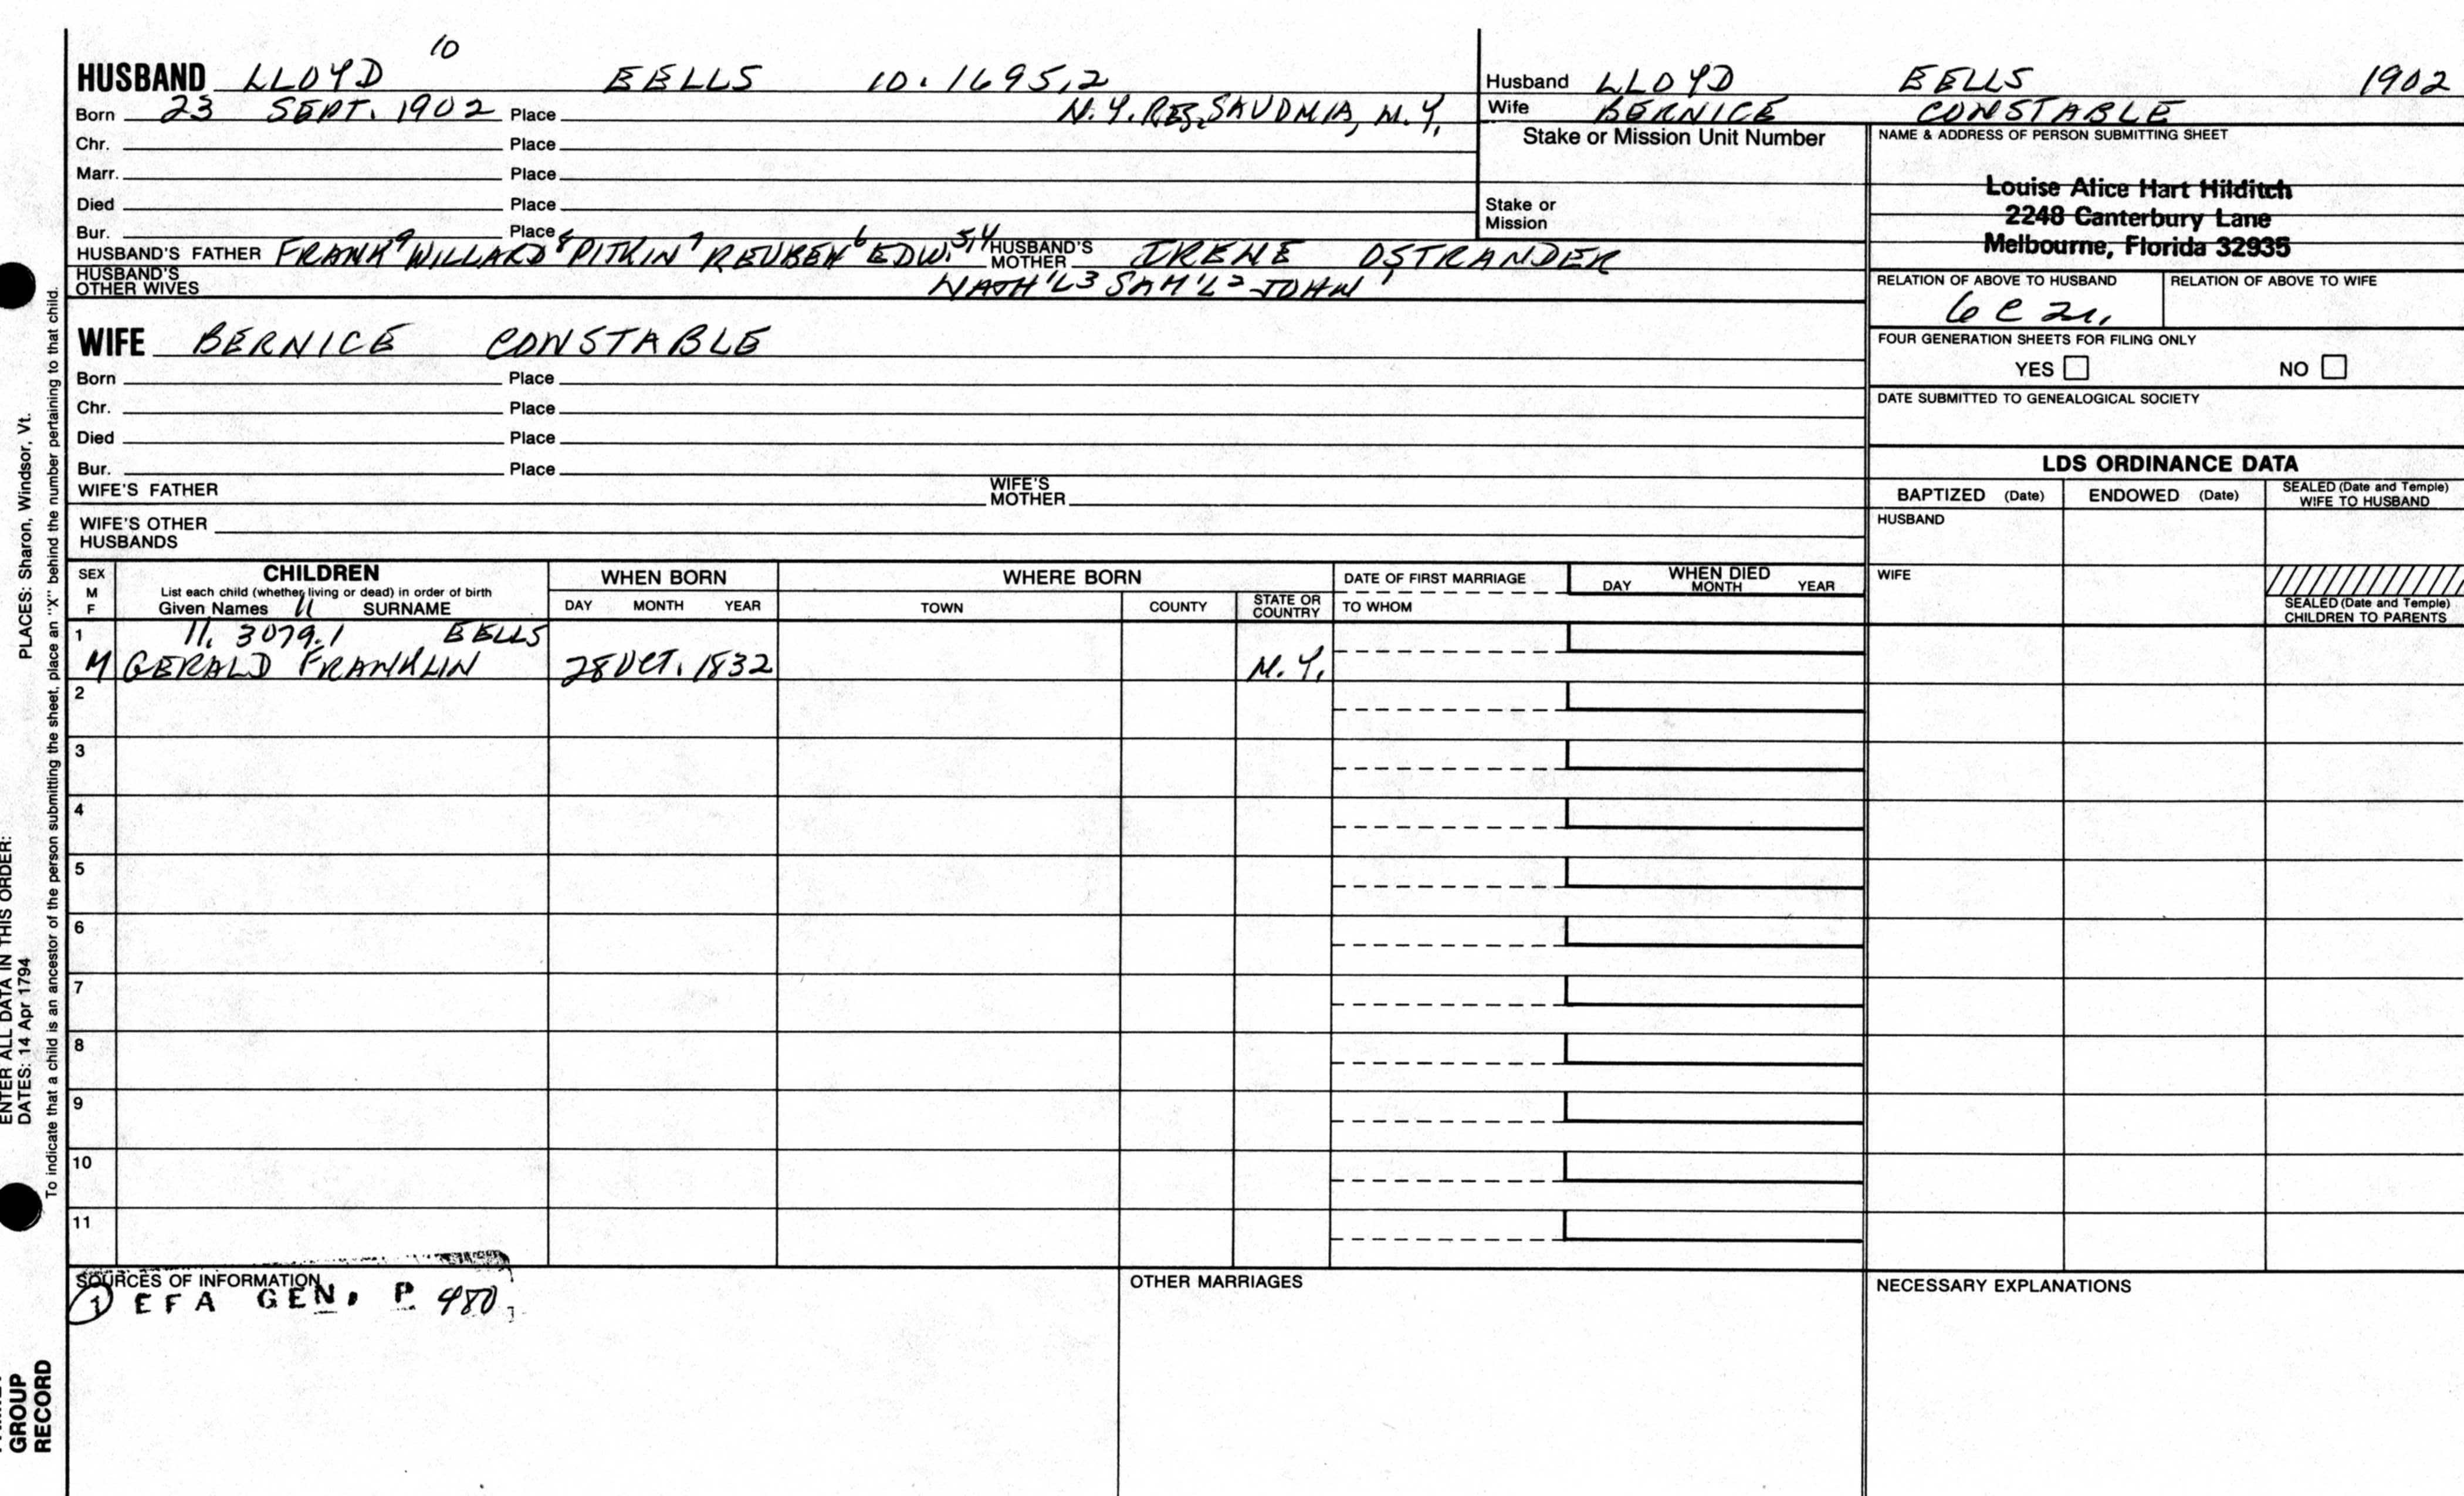 10
HUSBAND LLOYD EELLS 10.1695,2
Born 23 SEPT. 1902 Place N.Y. RES. SAVONIA, N.Y.
Chr. Place
Marr. Place
Died Place
Bur. Place
HUSBAND'S FATHER FRANK 9 WILLARD 8 PITKIN 7 REUBEN 6 EDW. 5,4 HUSBAND'S MOTHER IRENE OSTRANDER
HUSBAND'S OTHER WIVES NATH'L 3 SAM'L 2 JOHN 1
Husband LLOYD EELLS 1902
Wife BERNICE CONSTABLE
Stake or Mission Unit Number
Stake or
Mission
NAME & ADDRESS OF PERSON SUBMITTING SHEET
Louise Alice Hart Hilditch
2248 Canterbury Lane
Melbourne, Florida 32935
RELATION OF ABOVE TO HUSBAND RELATION OF ABOVE TO WIFE
6 C
FOUR GENERATION SHEETS FOR FILING ONLY
YES NO
DATE SUBMITTED TO GENEALOGICAL SOCIETY
WIFE BERNICE CONSTABLE
Born Place
Chr. Place
Died Place
Bur. Place
WIFE'S FATHER WIFE'S MOTHER
WIFE'S OTHER
HUSBANDS
LDS ORDINANCE DATA
BAPTIZED (Date) ENDOWED (Date) SEALED (Date and Temple) WIFE TO HUSBAND
HUSBAND
WIFE
SEALED (Date and Temple)
CHILDREN TO PARENTS
SEX
M
F
CHILDREN
List each child (whether living or dead) in order of birth
Given Names 11 SURNAME
WHEN BORN
DAY MONTH YEAR
WHERE BORN
TOWN COUNTY STATE OR COUNTRY
DATE OF FIRST MARRIAGE
TO WHOM
WHEN DIED
DAY MONTH YEAR
1 11. 3079.1 EELLS
M GERALD FRANKLIN 28 OCT. 1832 N.Y.
2
3
4
5
6
7
8
9
10
11
SOURCES OF INFORMATION
1 EFA GEN. P 480
OTHER MARRIAGES
NECESSARY EXPLANATIONS
ENTER ALL DATA IN THIS ORDER:
DATES: 14 Apr 1794 PLACES: Sharon, Windsor, Vt.
To indicate that a child is an ancestor of the person submitting the sheet, place an "X" behind the number pertaining to that child.
GROUP
RECORD